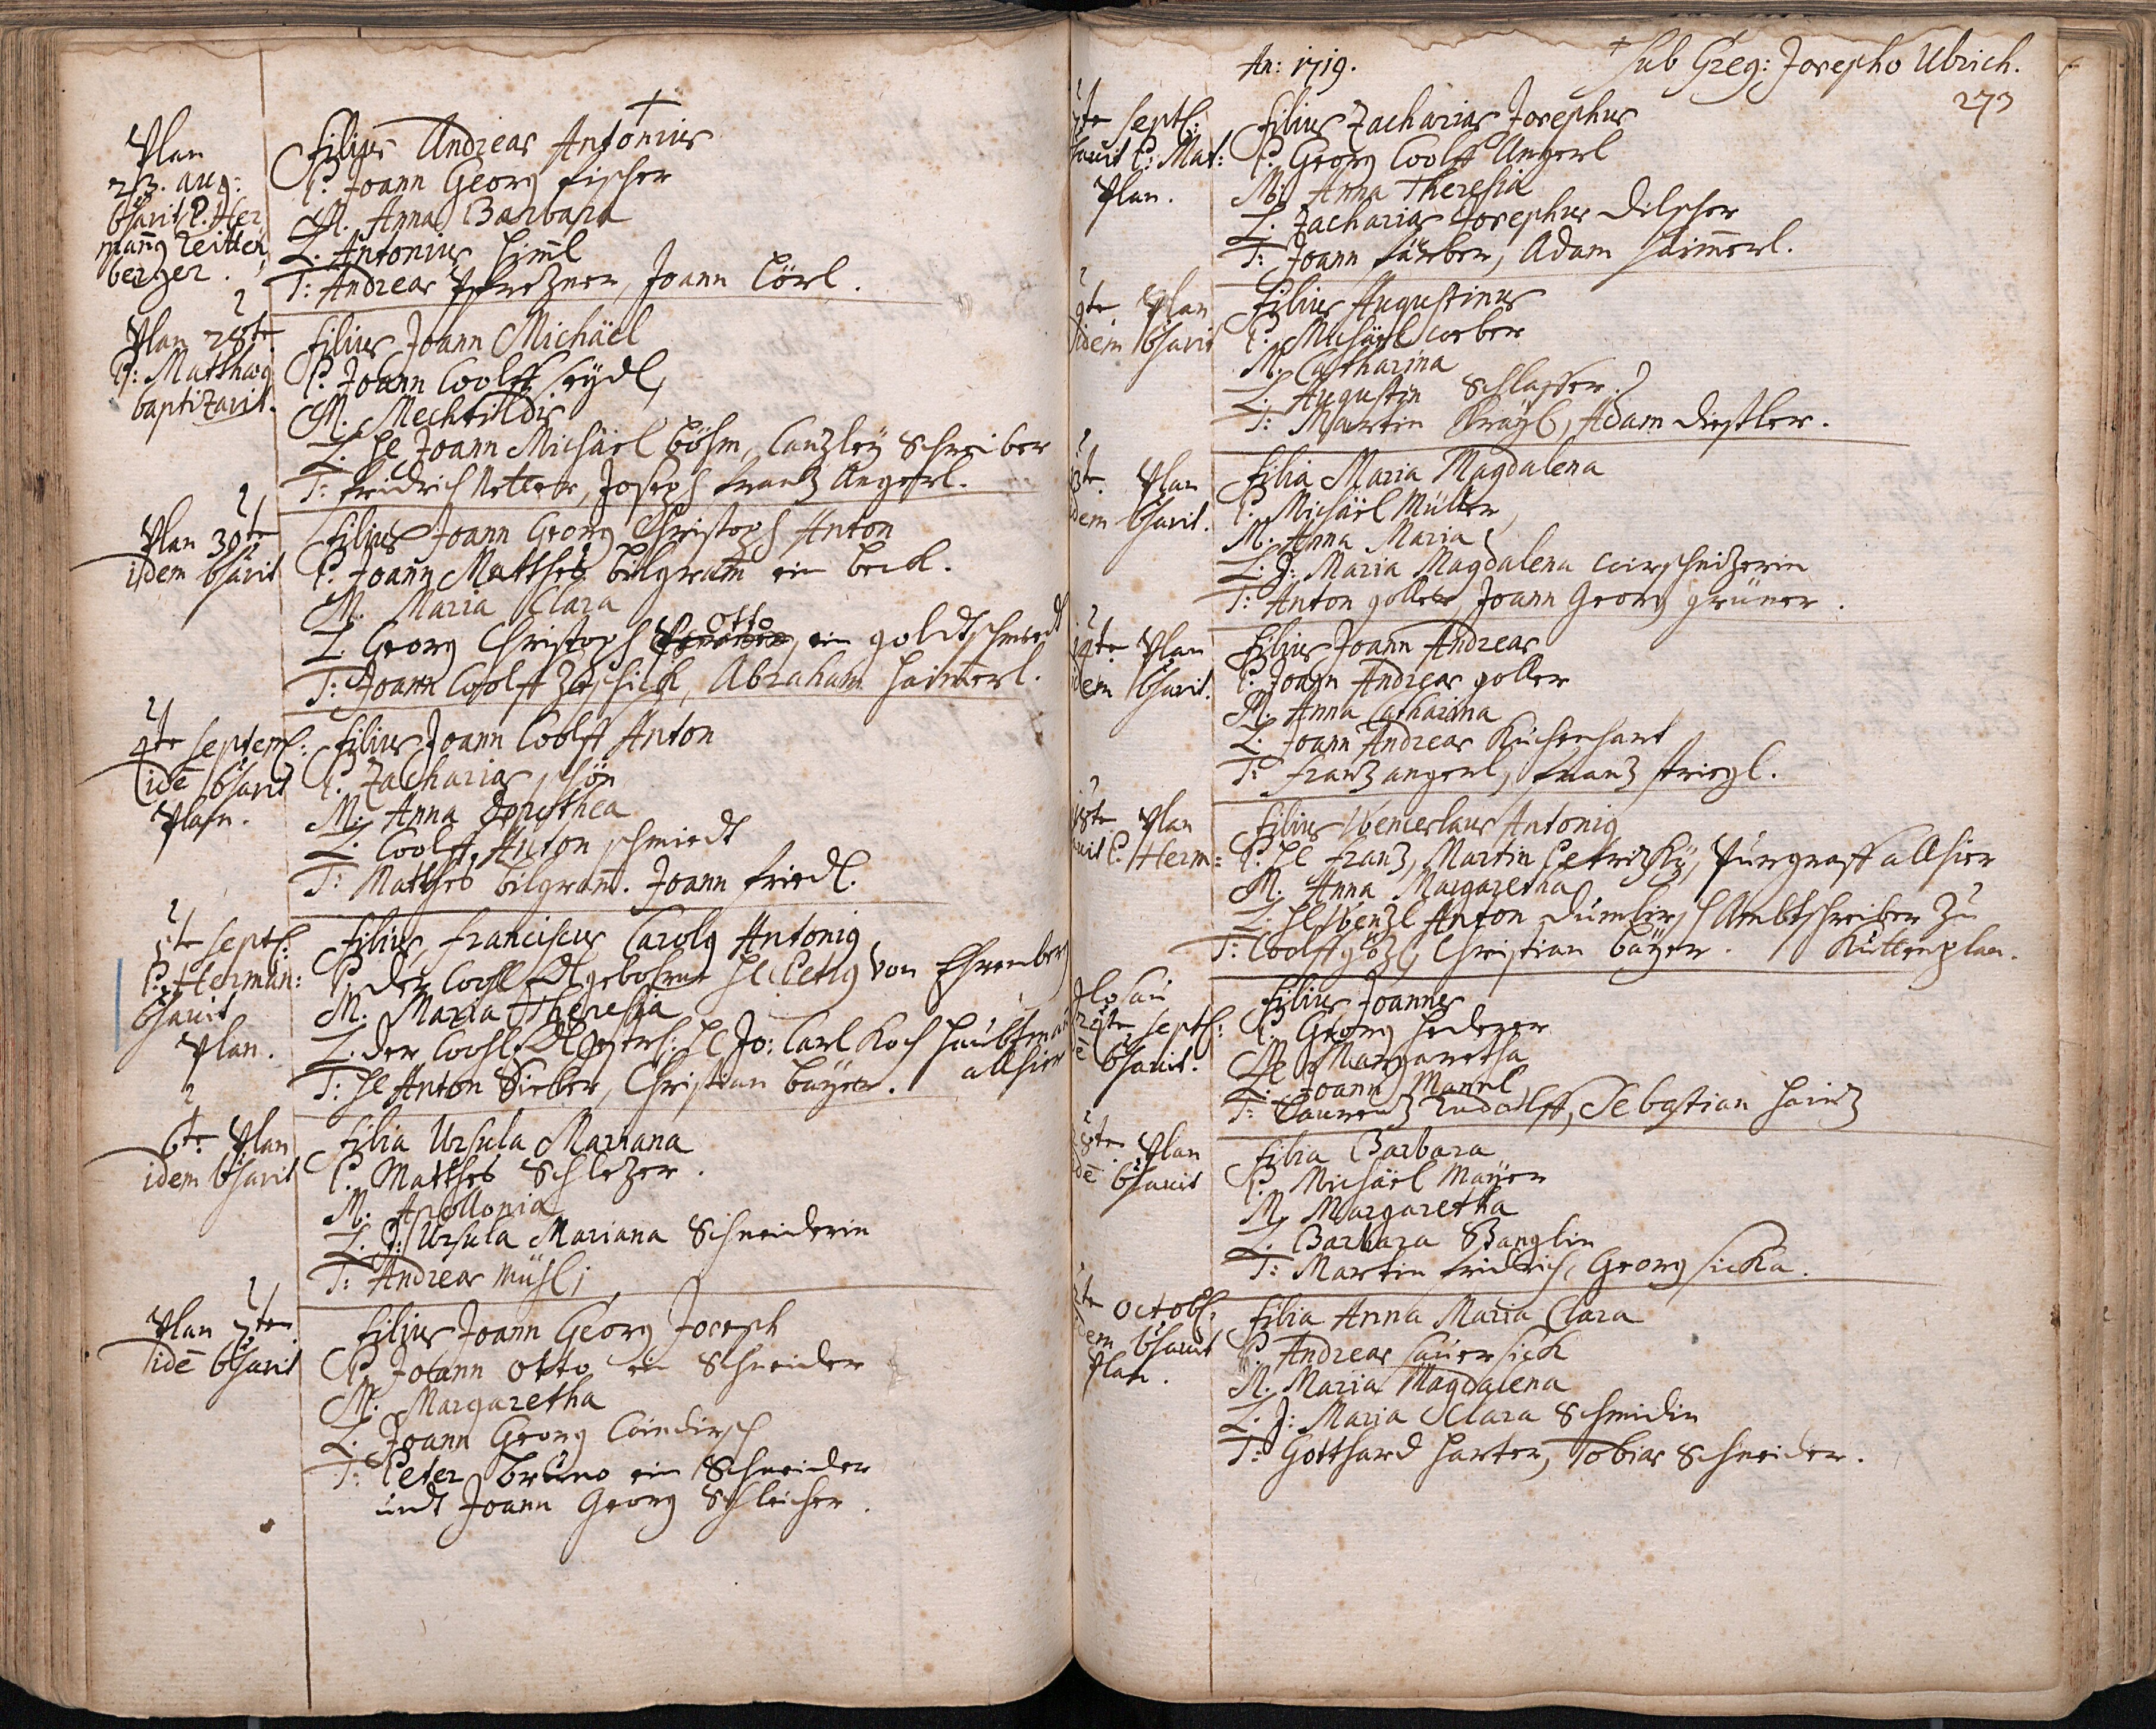 Plan
23. aug:
bŧavit P. Her
mang Reitten
berger.
†
Filius Andreas Antonius
P. Joann Georg Fischer
M. Anna Barbara
L. Antonius Himl
T: Andreas Joann Lörl.
Plan 28te
P: Matthæg
baptizavit.
Filius Joann Michäel
P. Joann Wolff Seÿdl,
M. Mechtildis
L. H Joann Michäel Böhm, Canzleÿ Schreiber
T: Fridrich Netter, Joseph Frantz Angerl.
Plan 30te
idem bŧavit
Filius Joann Georg Christoph Anton
P. Joann Matthes Bilgram ein Beck.
M. Maria Clara
L. Georg Christoph Otto, ein goldtschmiedt
T: Joann Wolff Abraham Haimerl.
4te Septemb:
idē bŧavit
Plan.
Filius Joann Wolff Anton
P. Zacharias Schön
M. Anna Dorothea
L. Wolff Anton Schmiedt
T: Matthes Bilgram. Joann Friedl.
5te Septb:
P: Herman:
bŧavit
Plan.
Filius Franciscus Carolg Antonig
P. der Wohl Edlgebohrne H Petrg von Ehrenberg
M. Maria Theresia
L. der Wohl Edl H Jo: Carl Koch Haubtman
allhier
T: H Anton Sieber, Christian Baÿer.
6te Plan
idem bŧavit
Filia Ursula Mariana
P. Matthes Schlezer.
M. Apollonia
L. J: Ursula Mariana Schneiderin
T: Andreas Mühl;
Plan 7ten
idē bŧavit
Filius Joann Georg Joseph
P. Johann Otto ein Schneider
M. Margaretha
L. Joann Georg
T: Peter Bruno ein Schneider
undt Joann Georg Schleicher.
An: 1719.
† Sub Greg: Josepho Ubrich.
273
7te Septb:
bŧavit P: Mat:
Plan.
Filius Zacharias Josephus
P. Georg Wolff Angerl
M. Anna Theresia
L. Zacharias Josephus Dilscher
T: Joann Färber, Adam Haimerl.
9te Plan
idem bŧavit
Filius Augustinus
P. Michäel Weber
M. Catharina
L. Augustin Schlosser.
T: Martin Adam Diestler.
13te. Plan
idem bŧavit.
Filia Maria Magdalena
P. Michäel Müller,
M. Anna Maria
L. J: Maria Magdalena Wirschnitzerin
T: Anton Goller, Joann Georg Grüner.
14te Plan
idem bŧavit.
Filius Joann Andreas
P. Joann Andreas Goller
M. Anna Catharina
L. Joann Andreas Küchenhart
T: Franz Angerl, Franz Striegl.
18te Plan
bŧavit P. Herm:
Filius Wenceslaus Antonig
P. H Franz Martin Petrizkÿ, Burgraff allhier
M. Anna Margaretha
L. H Wenzl Anton Ambtschreiber zu
Kuttenplan.
T: Wolff Götzl, Christian Baÿer.
24te Septb:
idē bŧavit.
Filius Joannes
P. Georg Hederer
M. Margaretha
L. Joann Mannl
T: Laurentz Rudolff, Sebastian Haintz
28te. Plan
idē bŧavit
Filia Barbara
P. Michäel Maÿer
M. Margaretha
L. Barbara Stanglin
T: Martin Fridrich, Georg Sicka.
2te Octobb:
idem bŧavit
Plan.
Filia Anna Maria Clara
P. Andreas Sauersick
M. Maria Magdalena
L. J: Maria Clara Schmidin
T: Gotthard Harter, Tobias Schneider.